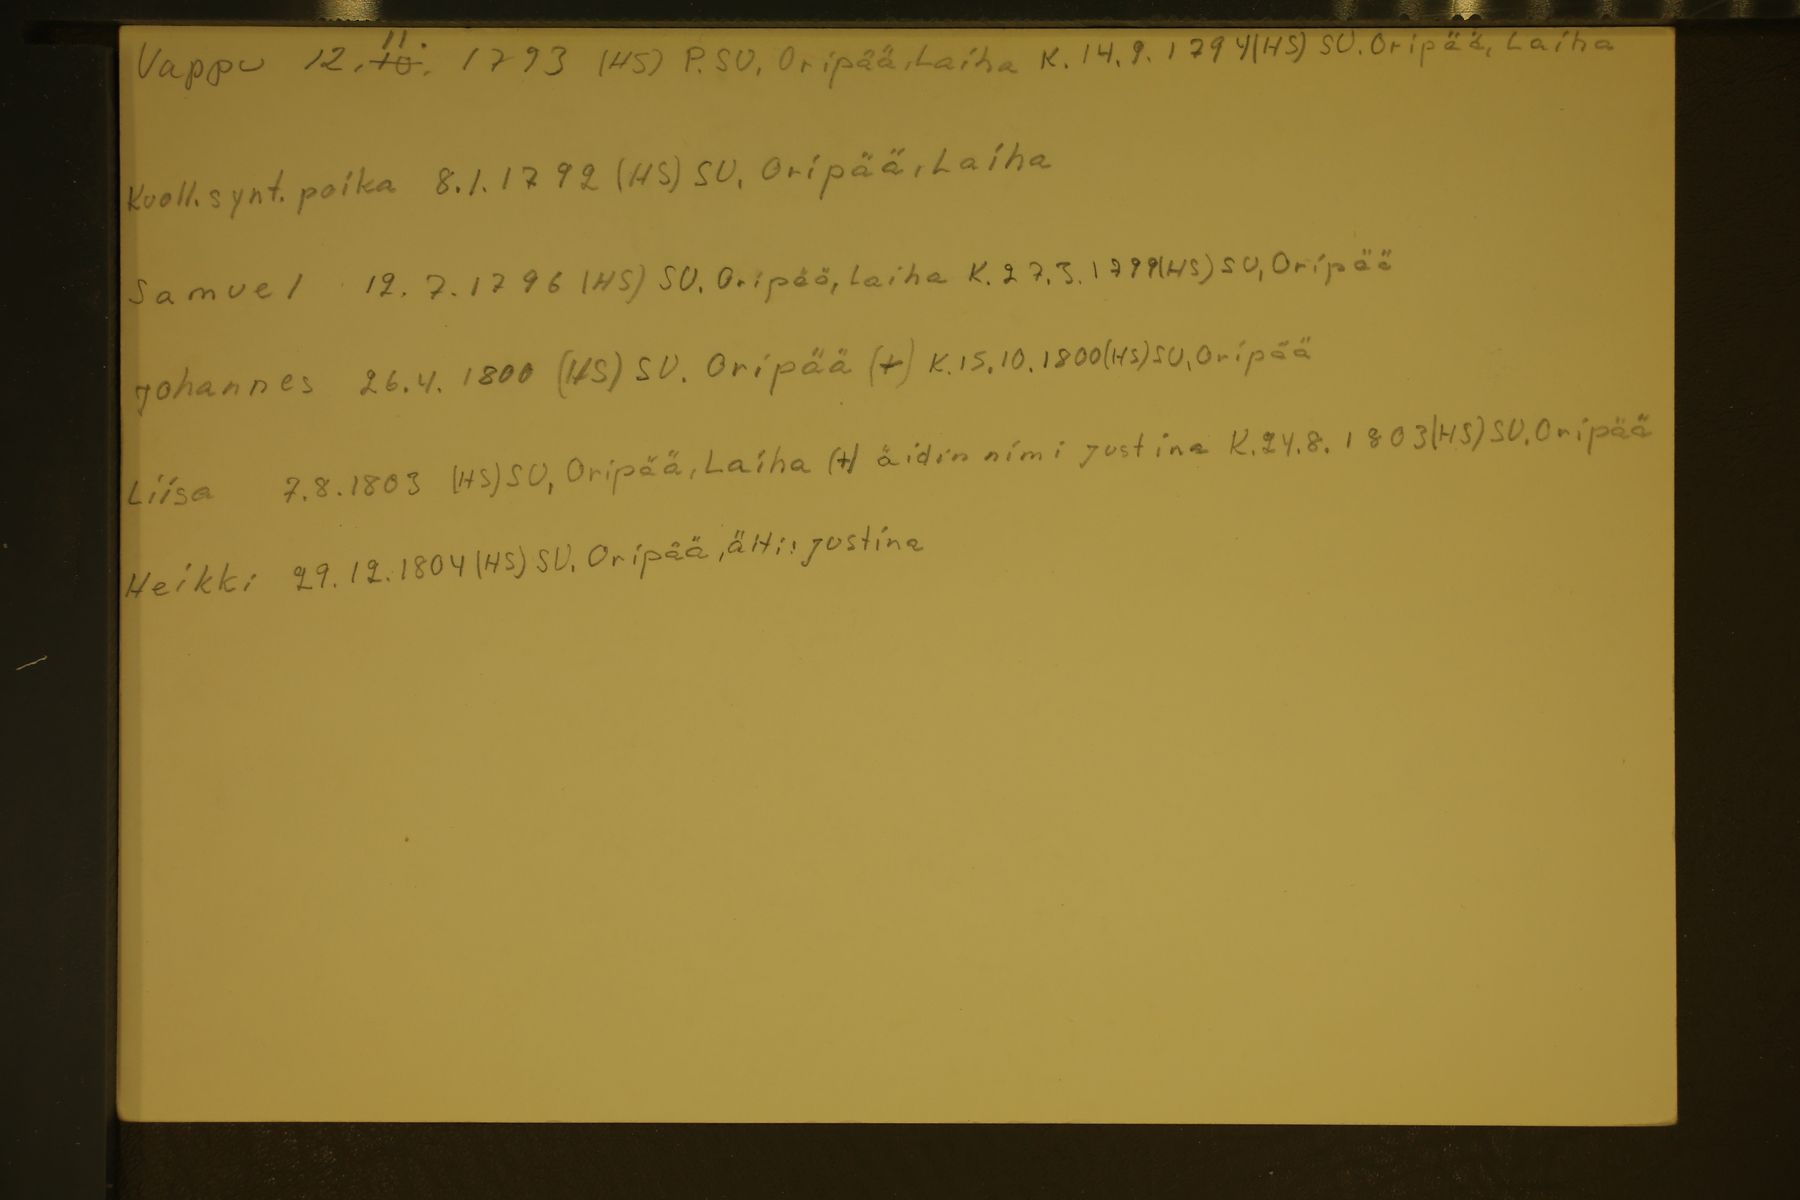 Vappu 12.11. 1793 (HS) P. SU. Oripää, Laiha K. 14.9.1794(HS) SU. Oripää, Laiha
Kuoll. synt. poika 8.1.1792 (HS) SU, Oripää, Laiha
Samuel 12.7.1796 (HS) SU. Oripää, Laiha K. 27.3.1799(HS) SU, Oripää
Johannes 26.4.1800 (HS) SU. Oripää (+) K. 15.10.1800(HS) SU, Oripää
Liisa 7.8.1803 (HS) SU, Oripää, Laiha (+) äidin nimi Justina K. 24.8.1803(HS) SU, Oripää
Heikki 29.12.1804 (HS) SU. Oripää, äiti: Justina